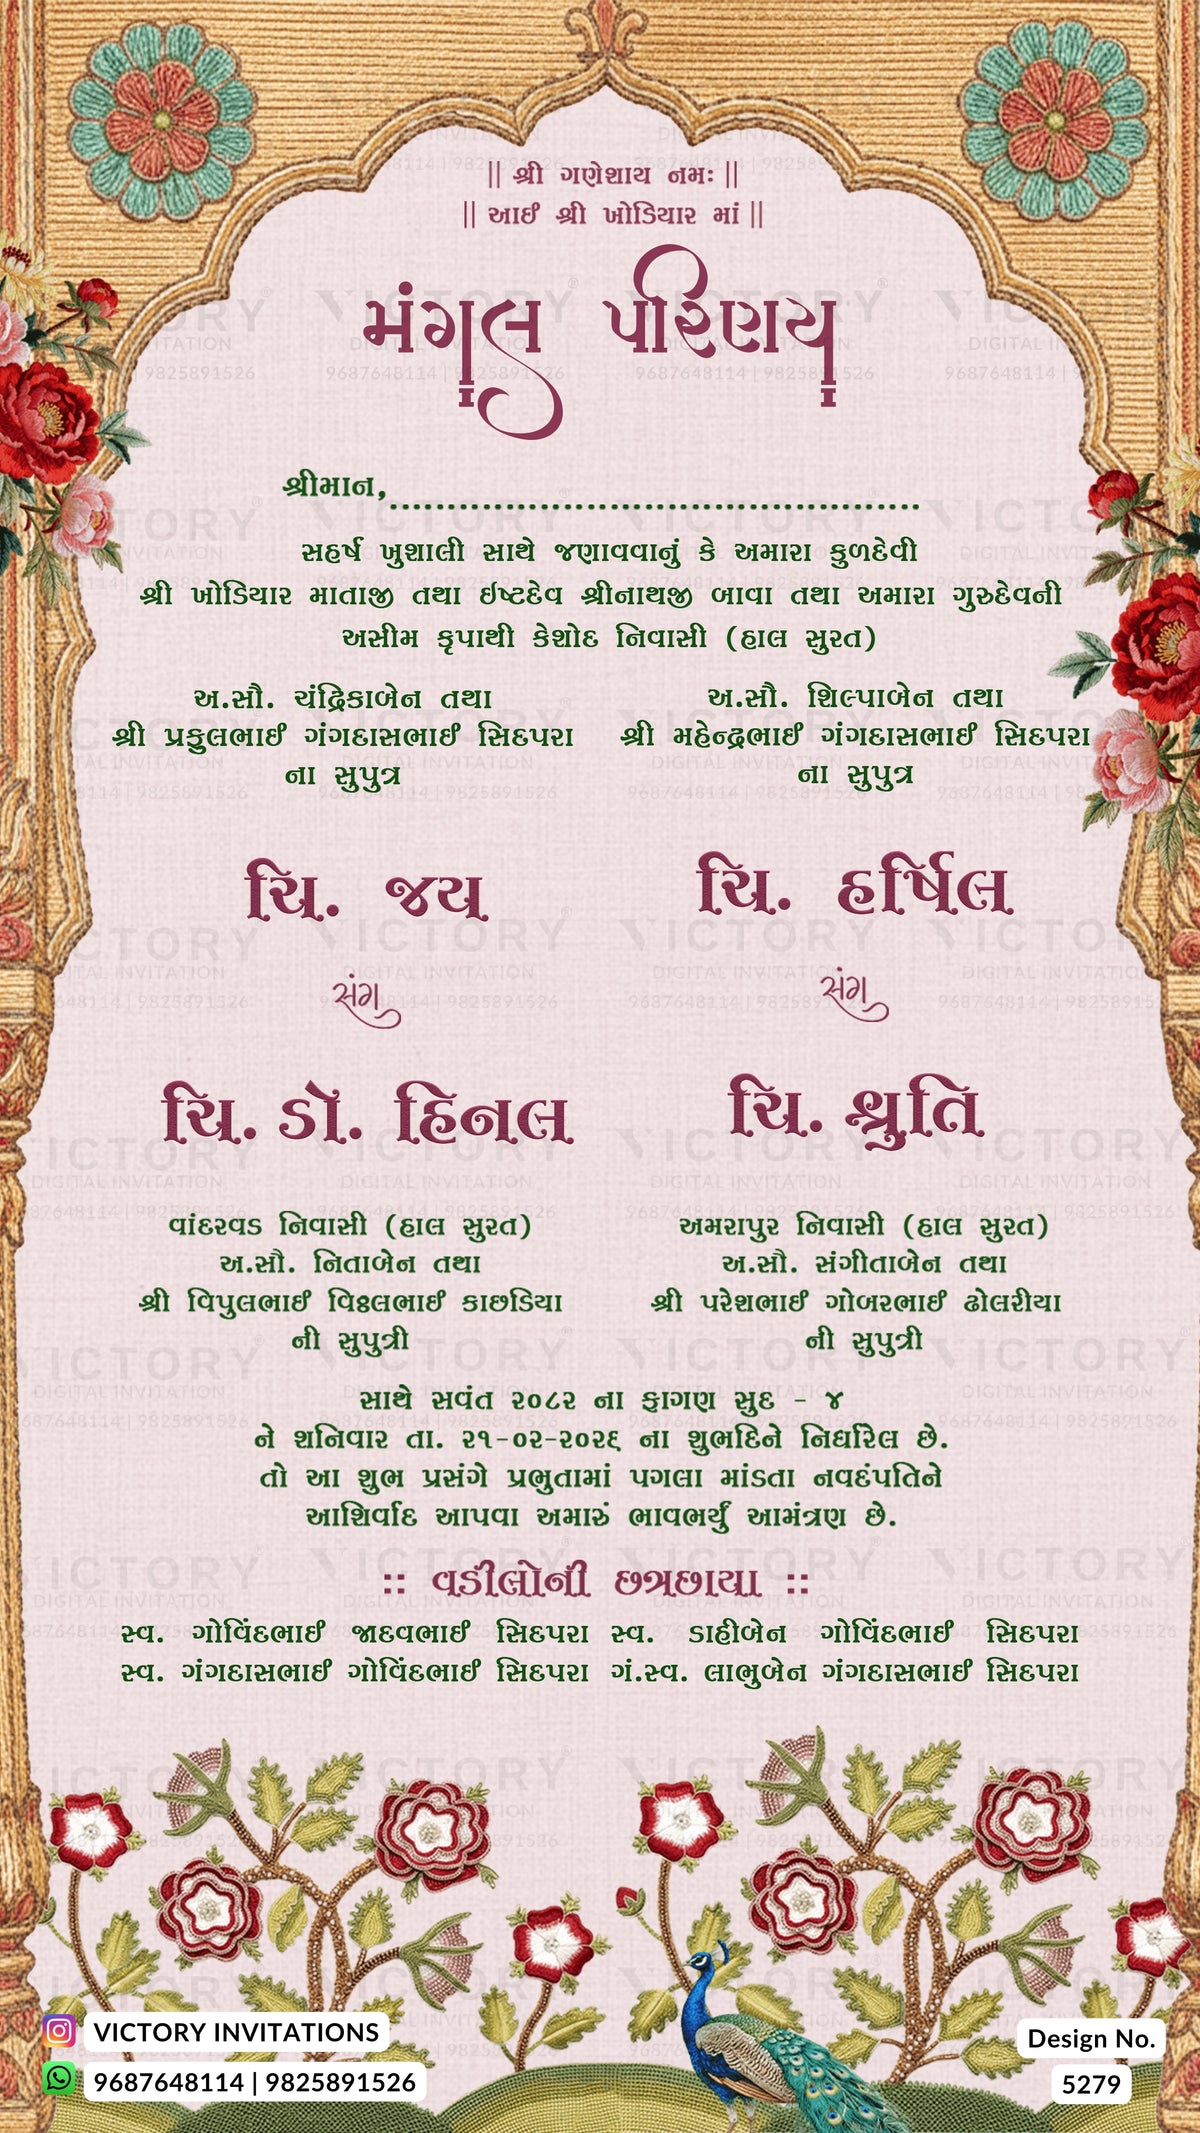 || શ્રી ગણેશાય નમઃ ||
|| આઈ શ્રી ખોડિયાર માં ||
મંગલ પરિણય
શ્રીમાન,..............................................
સહર્ષ ખુશાલી સાથે જણાવવાનું કે અમારા કુળદેવી
શ્રી ખોડિયાર માતાજી તથા ઇષ્ટદેવ શ્રીનાથજી બાવા તથા અમારા ગુરુદેવની
અસીમ કૃપાથી કેશોદ નિવાસી (હાલ સુરત)
અ.સૌ. ચંદ્રિકાબેન તથા
શ્રી પ્રફુલભાઈ ગંગદાસભાઈ સિદપરા
ના સુપુત્ર
ચિ. જય
સંગ
ચિ. ડૉ. હિનલ
વાંદરવડ નિવાસી (હાલ સુરત)
અ.સૌ. નિતાબેન તથા
શ્રી વિપુલભાઈ વિઠ્ઠલભાઈ કાછડિયા
ની સુપુત્રી
અ.સૌ. શિલ્પાબેન તથા
શ્રી મહેન્દ્રભાઈ ગંગદાસભાઈ સિદપરા
ના સુપુત્ર
ચિ. હર્ષિલ
સંગ
ચિ. શ્રુતિ
અમરાપુર નિવાસી (હાલ સુરત)
અ.સૌ. સંગીતાબેન તથા
શ્રી પરેશભાઈ ગોબરભાઈ ઢોલરીયા
ની સુપુત્રી
સાથે સવંત ૨૦૮૨ ના ફાગણ સુદ - ૪
ને શનિવાર તા. ૨૧-૦૨-૨૦૨૬ ના શુભદિને નિર્ધારેલ છે.
તો આ શુભ પ્રસંગે પ્રભુતામાં પગલા માંડતા નવદંપતિને
આશિર્વાદ આપવા અમારું ભાવભર્યું આમંત્રણ છે.
:: વડીલોની છત્રછાયા ::
સ્વ. ગોવિંદભાઈ જાદવભાઈ સિદપરા સ્વ. ડાહીબેન ગોવિંદભાઈ સિદપરા
સ્વ. ગંગદાસભાઈ ગોવિંદભાઈ સિદપરા ગં.સ્વ. લાભુબેન ગંગદાસભાઈ સિદપરા
VICTORY INVITATIONS
9687648114 | 9825891526
Design No.
5279
VICTORY
DIGITAL INVITATION
9687648114 | 9825891526